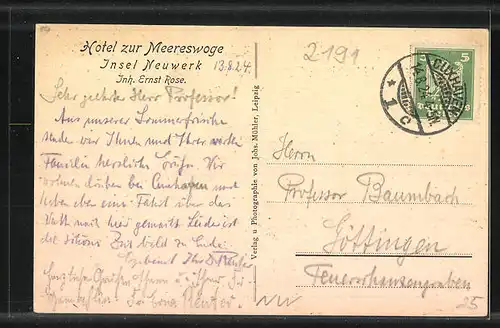 Hotel zur Meereswoge
Insel Neuwerk 13.8.24.
Inh. Ernst Rose.
Sehr geehrter Herr Professor!
Aus unserer Sommerfrische
senden wir Ihnen und Ihrer werten
Familie herzliche Grüße. Wir
wohnen drüben bei Cuxhaven und
haben eben eine Fahrt über das
Watt nach hier gemacht. Leider ist
die schöne Zeit bald zu Ende.
Ihr
Herzliche Grüßen Ihnen u. Ihrer
Verlag u Photographie von Johs. Möhler, Leipzig
2191
5
CUXHAVEN
* 1 c
Herrn
Professor Baumbach
Göttingen
Feuerschanzengraben
25